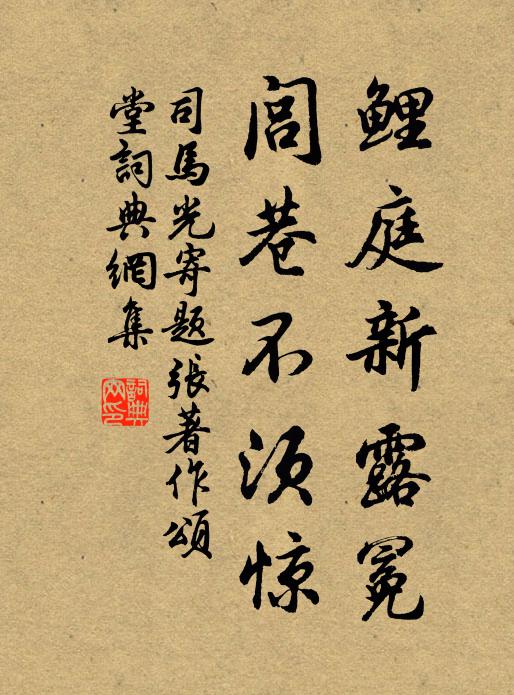 鯉庭新露冕
閭巷不須惊
司馬光寄題張著作頌
堂詞典網集
詞典
网印